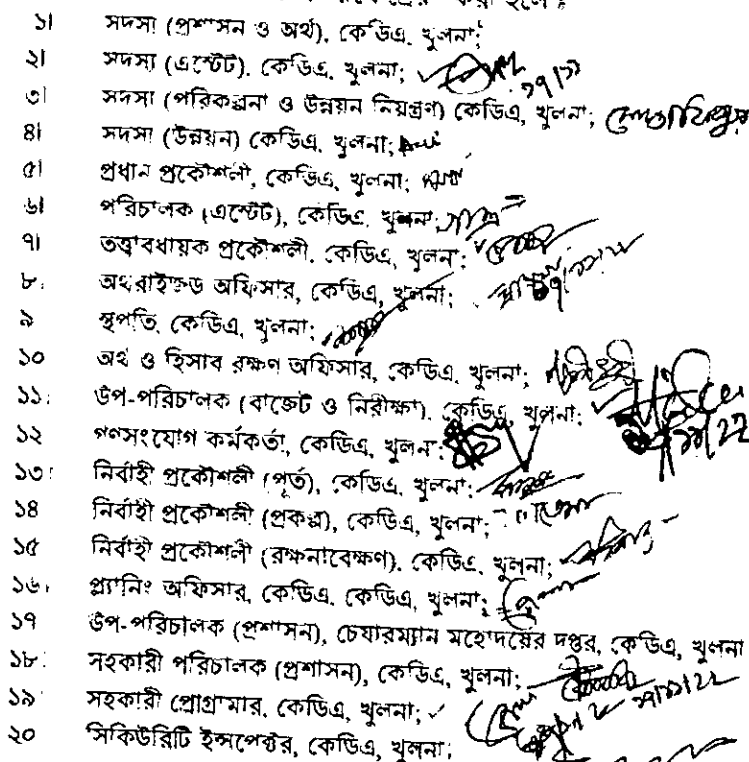 করা হলো ঃ
১। সদস্য (প্রশাসন ও অর্থ), কেডিএ, খুলনা;
২। সদস্য (এস্টেট), কেডিএ, খুলনা;
৩। সদস্য (পরিকল্পনা ও উন্নয়ন নিয়ন্ত্রণ) কেডিএ, খুলনা;
৪। সদস্য (উন্নয়ন) কেডিএ, খুলনা;
৫। প্রধান প্রকৌশলী, কেডিএ, খুলনা;
৬। পরিচালক (এস্টেট), কেডিএ, খুলনা;
৭। তত্ত্বাবধায়ক প্রকৌশলী, কেডিএ, খুলনা;
৮। অথরাইজড অফিসার, কেডিএ, খুলনা;
৯ স্থপতি, কেডিএ, খুলনা;
১০ অর্থ ও হিসাব রক্ষণ অফিসার, কেডিএ, খুলনা;
১১। উপ-পরিচালক (বাজেট ও নিরীক্ষা), কেডিএ, খুলনা;
১২ গণসংযোগ কর্মকর্তা, কেডিএ, খুলনা;
১৩। নির্বাহী প্রকৌশলী (পূর্ত), কেডিএ, খুলনা;
১৪ নির্বাহী প্রকৌশলী (প্রকল্প), কেডিএ, খুলনা;
১৫ নির্বাহী প্রকৌশলী (রক্ষনাবেক্ষণ), কেডিএ, খুলনা;
১৬। প্ল্যানিং অফিসার, কেডিএ, কেডিএ, খুলনা;
১৭ উপ-পরিচালক (প্রশাসন), চেয়ারম্যান মহোদয়ের দপ্তর, কেডিএ, খুলনা
১৮। সহকারী পরিচালক (প্রশাসন), কেডিএ, খুলনা;
১৯ সহকারী প্রোগ্রামার, কেডিএ, খুলনা;
২০ সিকিউরিটি ইন্সপেক্টর, কেডিএ, খুলনা;